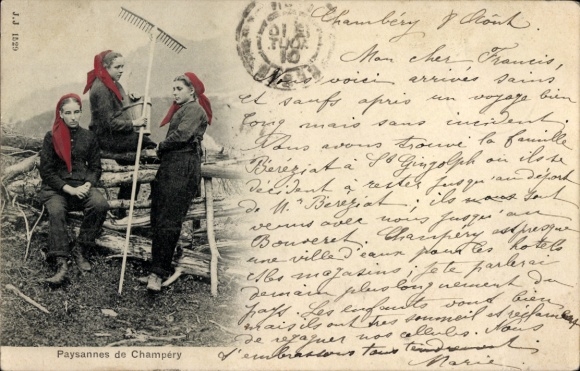 J.J. 1529
Champéry 8 Août
Mon cher Francis,
Nous voici arrivés sains
et saufs après un voyage bien
long mais sans incident.
Nous avons trouvé la famille
Béréziat à St Gingolph où ils se
décident à rester jusqu'au départ
de Mr Béréziat ; ils nous sont
venus avec nous jusqu'au
Bouveret. Champéry est presque
une ville d'eaux pour les hôtels
et les magasins ; je te parlerai
demain plus longuement du
pays. Les enfants vont bien
mais ils ont très sommeil et réclament
de regagner nos cellules. Nous
t'embrassons tous tendrement
Marie.
Paysannes de Champéry